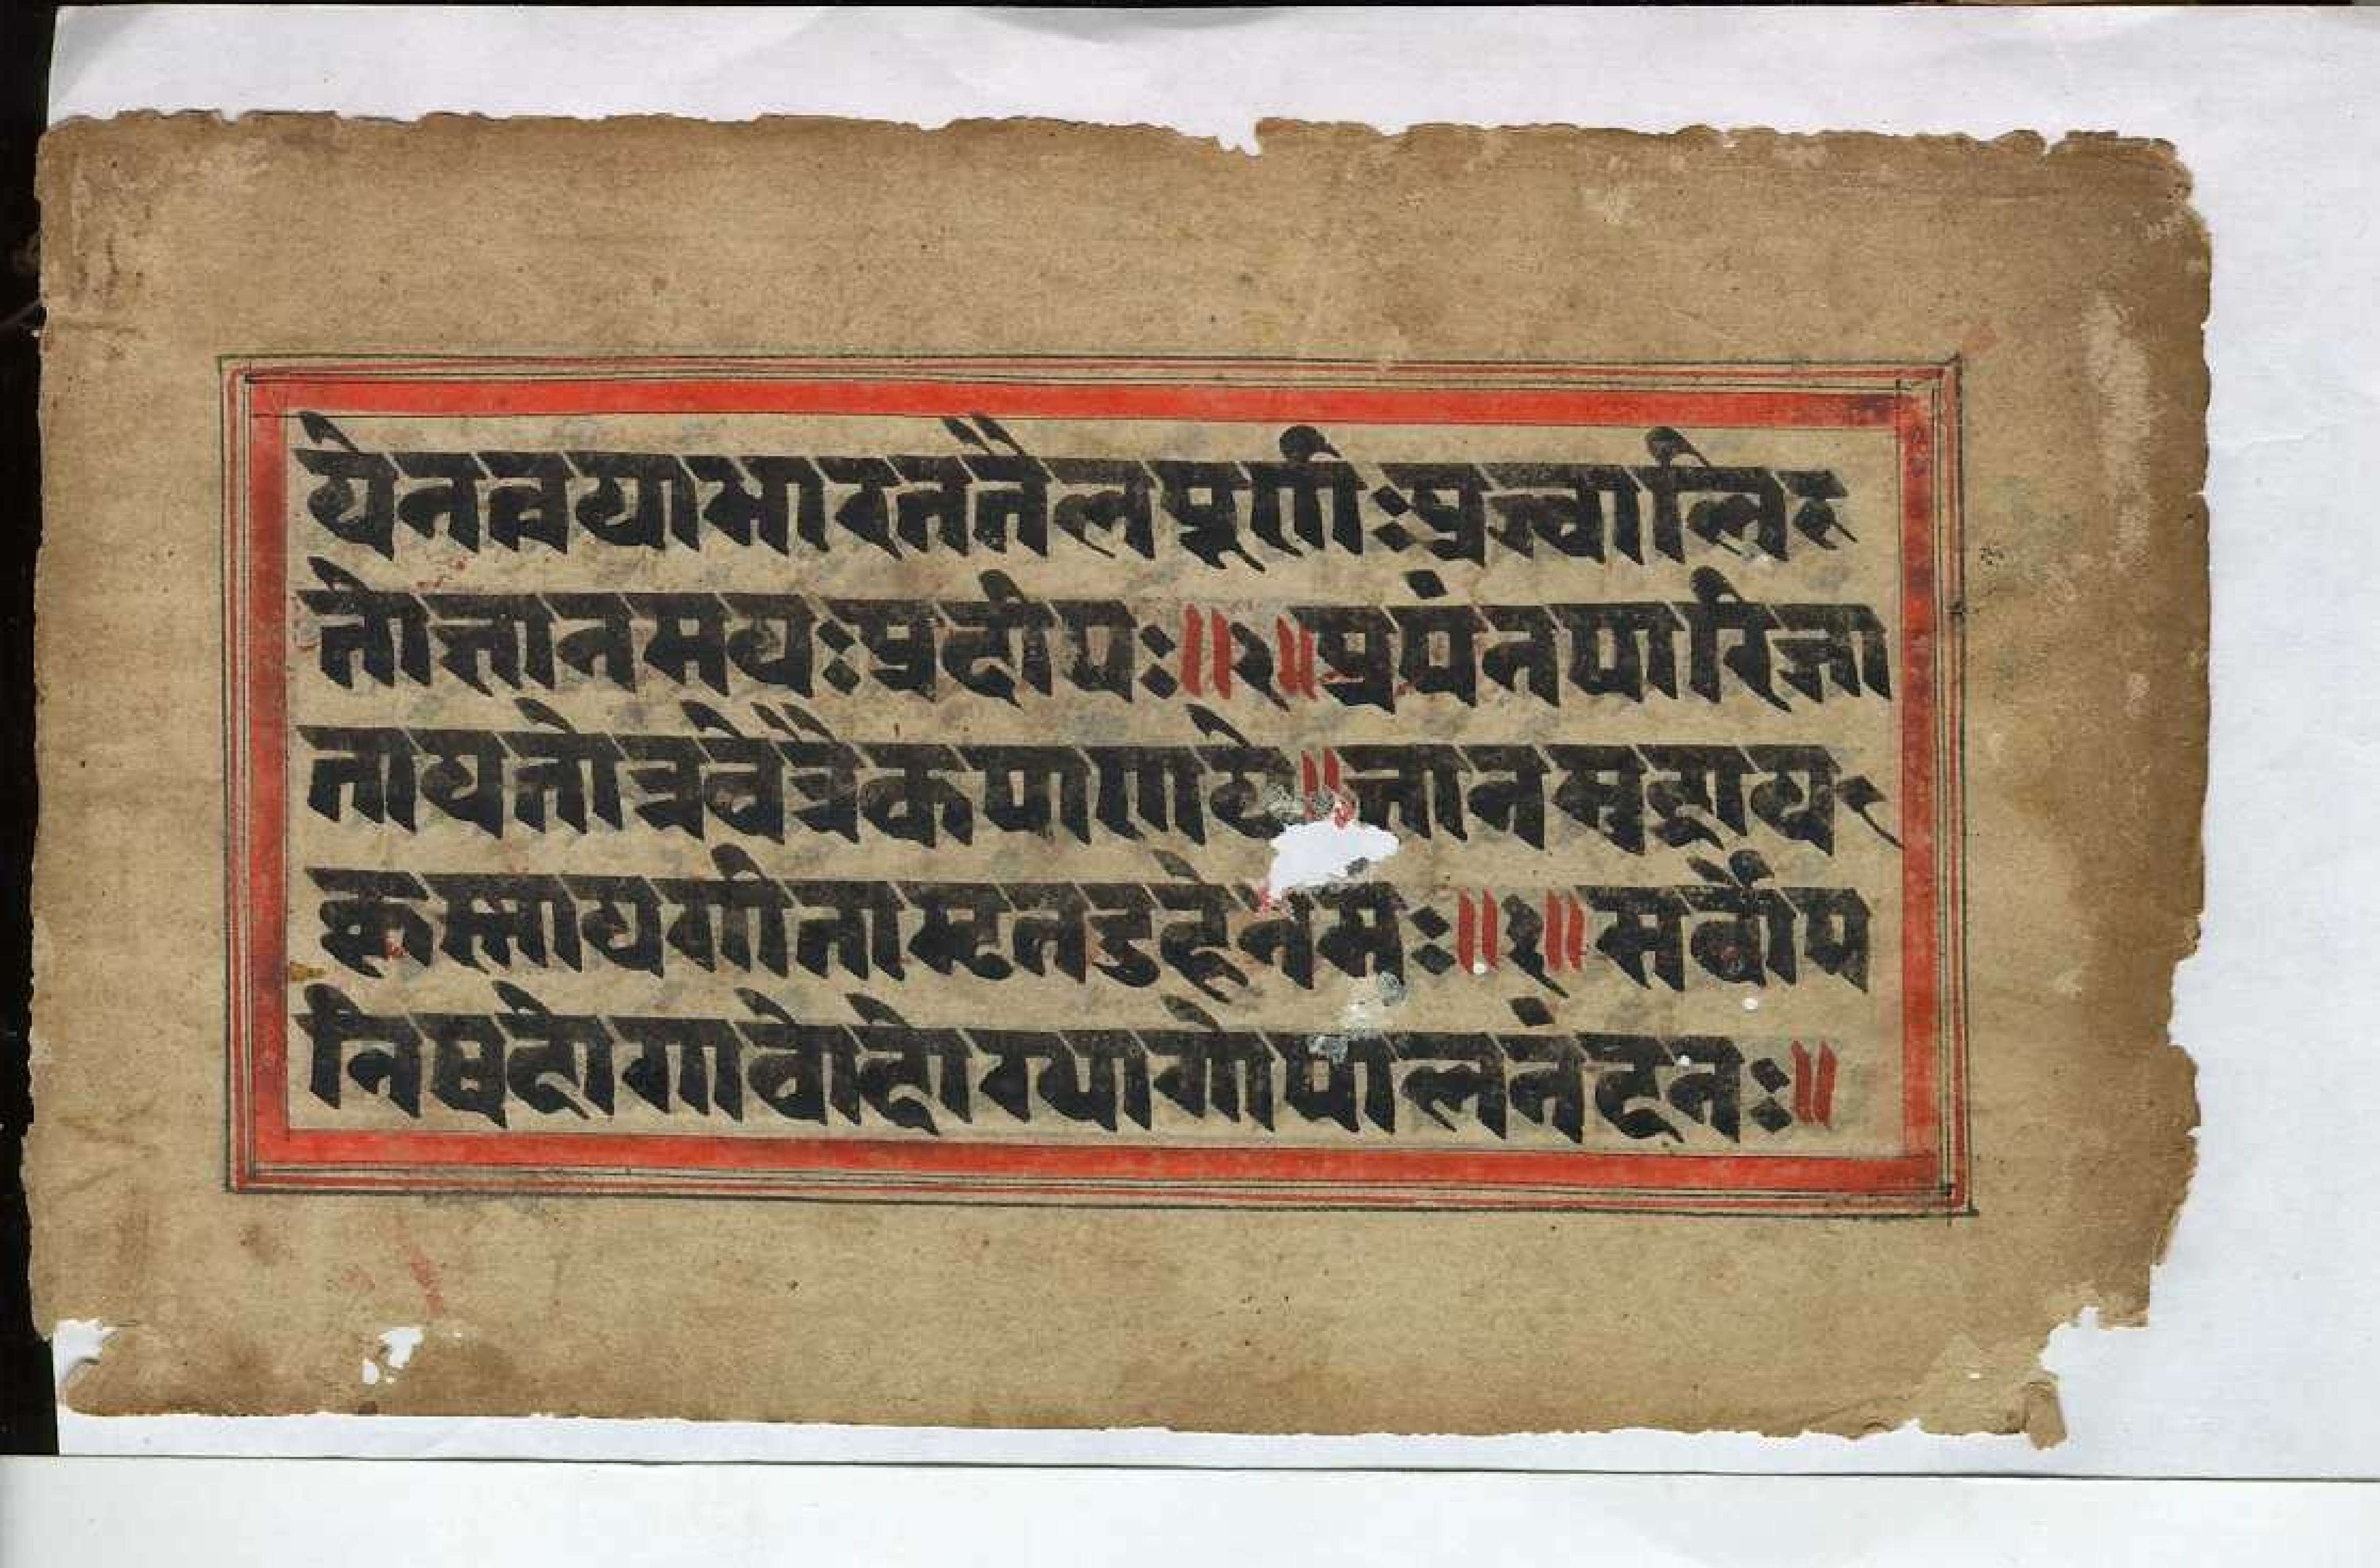 येनत्वयाभारततैलपूर्णाःप्रज्वालि
तोज्ञानमयःप्रदीपः॥२॥प्रपंनपारिजा
तायतोत्रवेत्रैकपाणये॥ज्ञानमुद्राय
कृस्नायगीतामृतदुहेनमः॥३॥सर्वोप
निषदोगावोदोग्धागोपालनंदनः॥